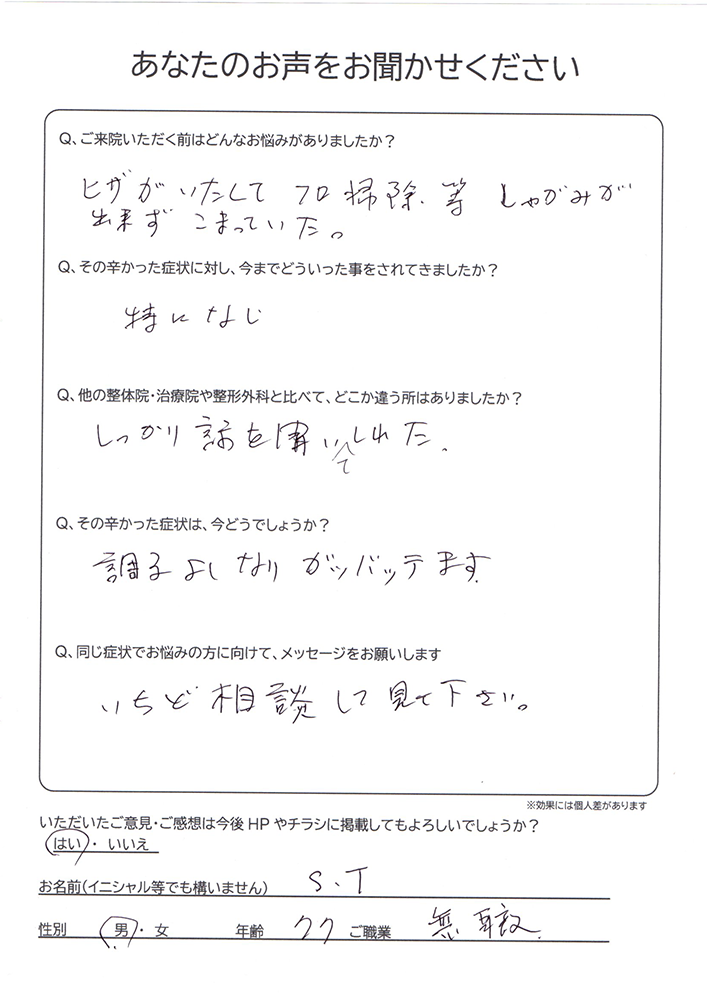 あなたのお声をお聞かせください
Q、ご来院いただく前はどんなお悩みがありましたか？
ヒザがいたくて フロ掃除.等 しゃがみが
出来ず こまっていた。
Q、その辛かった症状に対し、今までどういった事をされてきましたか？
特になし
Q、他の整体院・治療院や整形外科と比べて、どこか違う所はありましたか？
しっかり話を聞いてくれた.
Q、その辛かった症状は、今どうでしょうか？
調子よくなりガンバッテます.
Q、同じ症状でお悩みの方に向けて、メッセージをお願いします
いちど相談して見て下さい。
※効果には個人差があります
いただいたご意見・ご感想は今後 HP やチラシに掲載してもよろしいでしょうか？
はい ・ いいえ
お名前(イニシャル等でも構いません) S.T
性別 男・女 年齢 77 ご職業 無職.